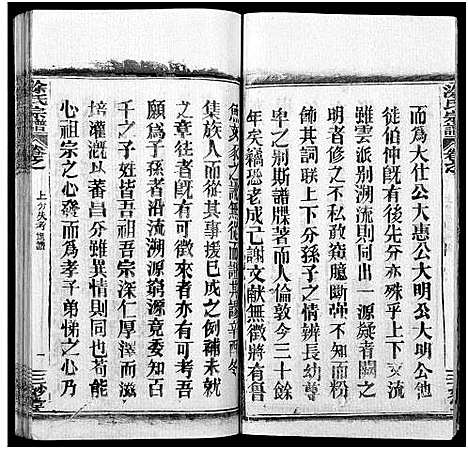 涂氏宗譜
而為大仕公大惠公大明公大明公他
徙伯仲既有後先分亦殊乎上下支流
雖雲派別溯流則同出一源疑者闕之
明者修之不私政窺臆斷弗不知而粉
飾其詞聯上下分孫子之情辨長幼尊
卑之別斯譜牒著而人倫敦今三十餘
年矣竊恐老成已謝文獻無徵將有魯
集族人而續修爰按已成之例補未就
之章往者既有可徵來者亦可考吾
願為子孫者沿流溯源窮源竟委知百
千之子姓皆吾祖吾宗深仁厚澤而滋
培灌溉以蕃昌分雖異情則同也苟能
心祖宗之心發而為孝子弟悌之心乃
涂氏宗譜
一